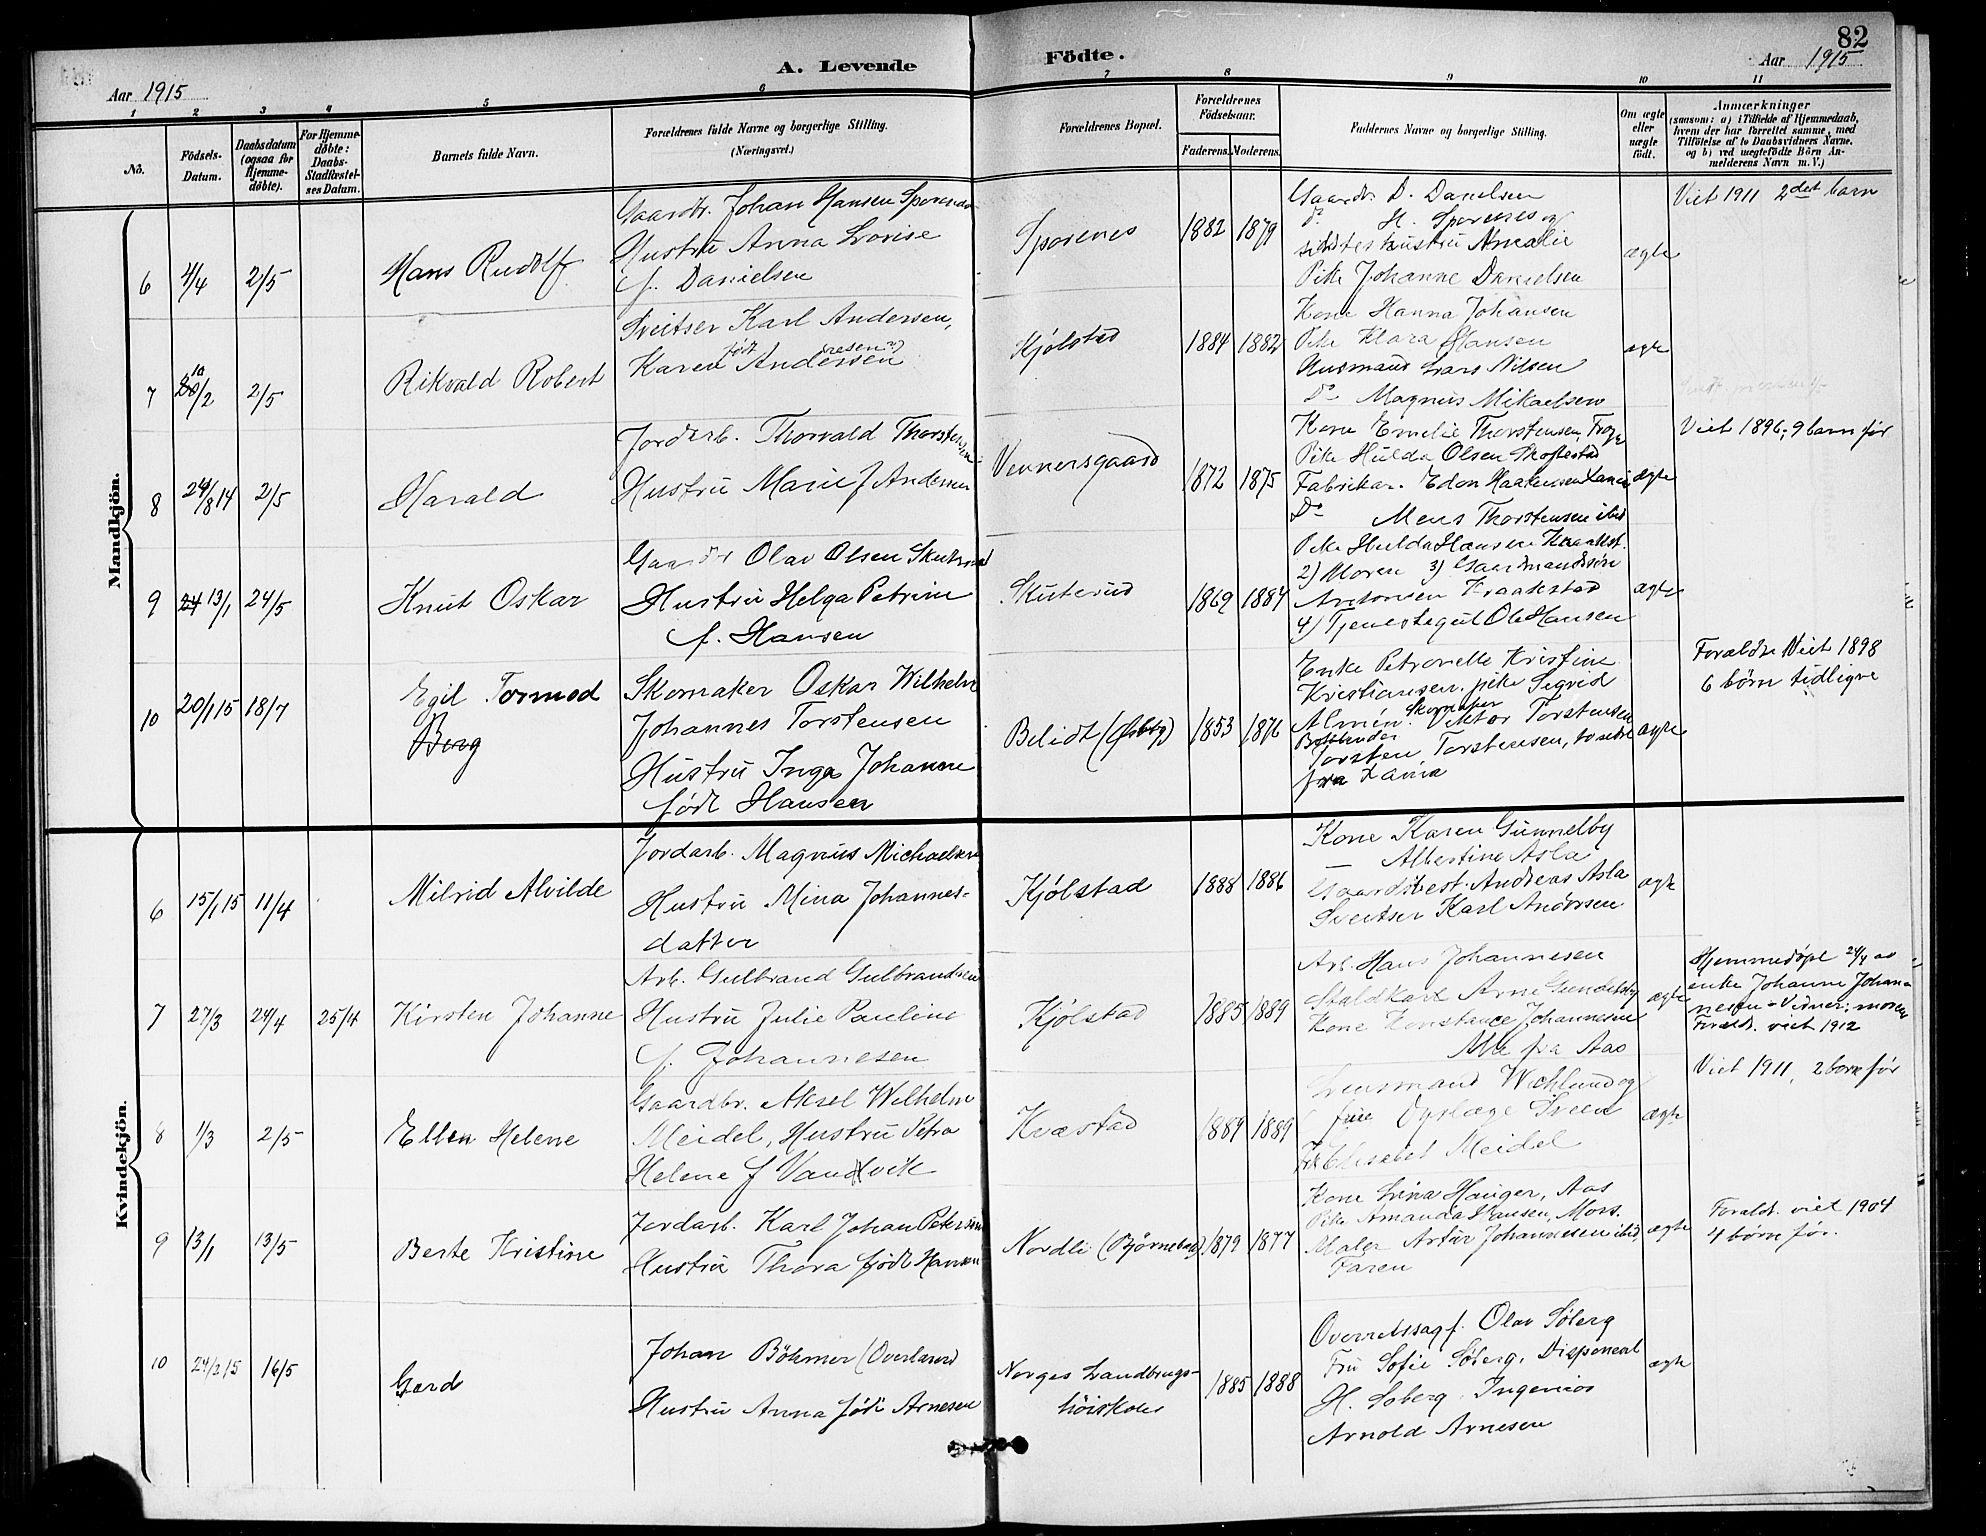 82
A. Levende
Födte.
Aar 1915
Aar 1915
1
2
3
4
5
6
7
8
9
10
11
No.
Födsels-
Datum.
Daabsdatum
(ogsaa for
Hjemme-
döbte).
For Hjemme-
döbte:
Daabs-
Stadfæstel-
ses Datum.
Barnets fulde Navn.
Forældrenes fulde Navne og borgerlige Stilling.
(Næringsvei.)
Forældrenes Bopæl.
Forældrenes
Födselsaar.
Faderens.
Moderens.
Faddernes Navne og borgerlige Stilling.
Om ægte
eller
uægte
födt.
Anmærkninger
(saasom: a) i Tilfælde af Hjemmedaab,
hvem der har forrettet samme, med
Tilföielse af to Daabsvidners Navne,
og b) ved uægtefödte Börn An-
melderens Navn m. V.)
Mandkjön.
6
4/4
2/5
Hans Rudolf
Gaardbr. Johan Hansen
Hustru Anna Lovise
f. Danielsen
Sporenes
1882
1879
Gaardb. D. Danielsen
Do H. Sporenes og
sidstes hustru Amalie
Pike Johanne Danielsen
ægte
Viet 1911 2det barn
7
10/2
2/5
Rikvald Robert
Sveitser Karl Andersen,
Karen født Andersen
Kjölstad
1884
1882
Kone Hanna Johansen
Pike Klara Hansen
Husmand Lars Nilsen
Do Magnus Mikaelsen
ægte
8
24/8 14
2/5
Harald
Jordarb. Thorvald Thorstensen
Hustru Marie f Andersen
Vennersgaard
1872
1875
Kone Emelie Thorstensen,
Pike Hulda Olsen Skoftestad
Fabrikar. Edon Haakensen
Do Mens Thorstensen ibid
ægte
Viet 1896; 9 barn før
9
24 13/1
24/5
Knut Oskar
Gaardbr Olav Olsen Skuterud
Hustru Helga Petrine
f. Hansen
Skuterud
1869
1884
Pike Hulda Hansen Kraakst.
2) Moren 3) Gaardmandssøn
Antonsen Kraakstad
4) Tjenestegut Ole Hansen
ægte
10
20/1 15
18/7
Egil Tormod
Berg
Skomaker Oskar Wilhelm
Johannes Torstensen
Hustru Inga Johanne
født Hansen
Belidt (Østby)
1853
1876
Enke Petronelle Kristine
Kristiansen. pike Sigrid
Almén. Skomaker Viktor Torstensen
Torsten Torstensen,
fra
ægte
Forældr. Viet 1898
6 børn tidligre
Kvindekjön.
6
15/1 15
11/4
Milrid Alvilde
Jordarb. Magnus Michaelsen
Hustru Mina Johannes-
datter
Kjölstad
1888
1886
Kone Karen Gunnelby
— Albertine Asla
Gaardsbest. Andreas Asla
Sveitser Karl Andersen
ægte
7
27/3
24/4
25/4
Kirsten Johanne
Arb. Gulbrand Gulbrandsen
Hustru Julie Pauline
f. Johannesen
Kjölstad
1885
1889
Arb. Hans Johannesen
Staldkarl Arne Gundelsby
Kone Konstance Johannesen
Alle fra Aas
ægte
Hjemmedøpt 24/4 av
enke Johanne Johan-
nesen - Vidner: moren
Foræld. viet 1912
8
1/3
2/5
Ellen Helene
Gaardbr. Aksel Wilhelm
Meidel, Hustru Petra
Helene f Vandvik
Kvestad
1889
1889
Lensmand Wichlund og
frue Dyrlæge Sveen
Frk Elisabet Meidel
ægte
Viet 1911, 2 børn før
9
13/1
13/5
Berte Kristine
Jordarb. Karl Johan Petersen
Hustru Thora født Hansen
Nordli (Bjørnebæk)
1879
1877
Kone Lina Hauger, Aas
Pike Amanda Hansen, Moss.
Maler Artur Johannesen ibid,
Faren
ægte
Foræld. viet 1904
4 børn før.
10
24/2 15
16/5
Gerd
Johan Böhmer (Overlærer)
Hustru Anna født Arnesen
Norges Landbrugs-
høiskole
1885
1888
Overretssagf. Olav Söberg
Fru Sofie Söberg, Disponent
H. Söberg. Ingeniør
Arnold Arnesen
ægte